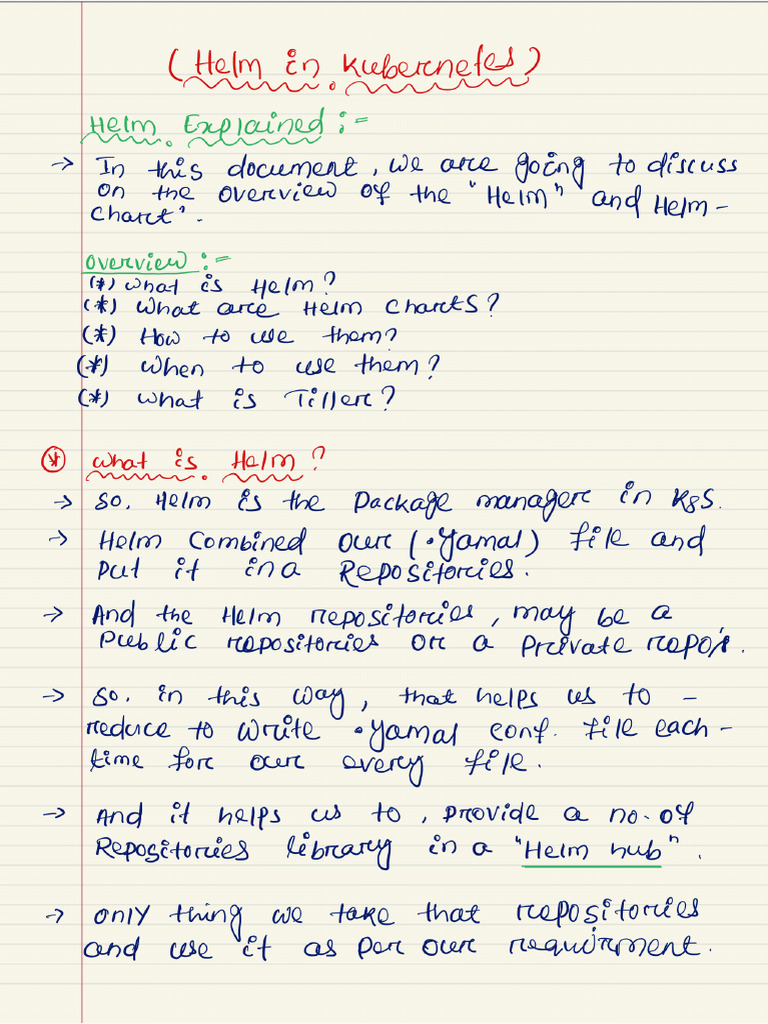 (Helm in Kubernetes)
Helm Explained :-
→ In this document, we are going to discuss
on the overview of the "Helm" and Helm-
Chart".
Overview :-
(*) What is Helm?
(*) What are Helm Charts?
(*) How to use them?
(*) When to use them?
(*) What is Tiller?
* What is Helm?
→ So, Helm is the Package manager in K8S.
→ Helm Combined our (.Yamal) file and
put it in a Repositories.
→ And the Helm repositories, may be a
Public repositories or a Private repo's.
→ So. in this way, that helps us to -
reduce to write .Yamal conf. file each-
time for our every file.
→ And it helps us to, provide a no. of
Repositories library in a "Helm hub".
→ Only thing we take that repositories
and use it as per our requirment.